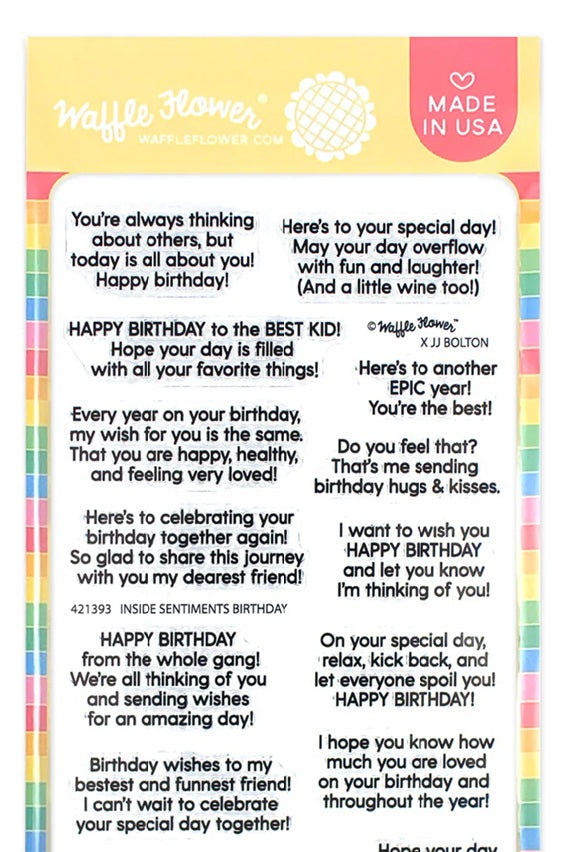 Waffle Flower®
WAFFLEFLOWER.COM
MADE
IN USA
You're always thinking
about others, but
today is all about you!
Happy birthday!
Here's to your special day!
May your day overflow
with fun and laughter!
(And a little wine too!)
HAPPY BIRTHDAY to the BEST KID!
Hope your day is filled
with all your favorite things!
©Waffle Flower™
X JJ BOLTON
Here's to another
EPIC year!
You're the best!
Every year on your birthday,
my wish for you is the same.
That you are happy, healthy,
and feeling very loved!
Do you feel that?
That's me sending
birthday hugs & kisses.
Here's to celebrating your
birthday together again!
So glad to share this journey
with you my dearest friend!
I want to wish you
HAPPY BIRTHDAY
and let you know
I'm thinking of you!
421393 INSIDE SENTIMENTS BIRTHDAY
HAPPY BIRTHDAY
from the whole gang!
We're all thinking of you
and sending wishes
for an amazing day!
On your special day,
relax, kick back, and
let everyone spoil you!
HAPPY BIRTHDAY!
Birthday wishes to my
bestest and funnest friend!
I can't wait to celebrate
your special day together!
I hope you know how
much you are loved
on your birthday and
throughout the year!
Hope your day